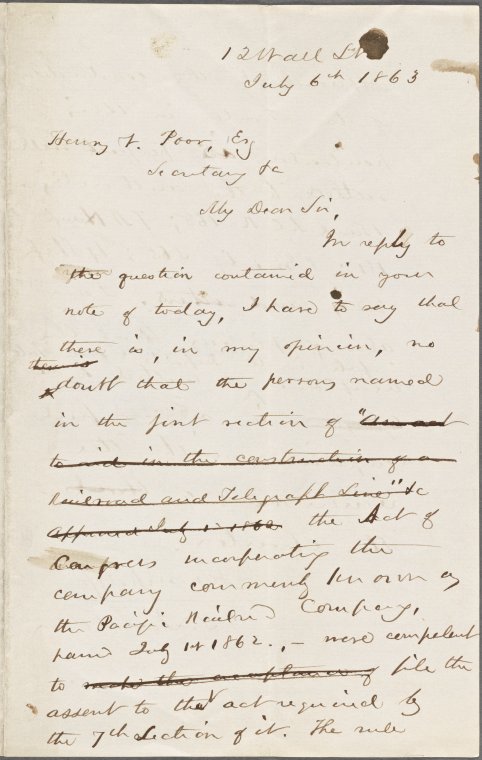 12 Wall St
July 6th 1863
Henry V. Poor, Esq
Secretary &c
My Dear Sir,
In reply to
the question contained in your
note of today, I have to say that
there is, in my opinion, no
there is
doubt that the persons named
in the first section of "An act
to aid in the construction of a
Railroad and Telegraph Line" &c
approved July 1st 1862 the Act of
Congress incorporating the
company commonly known as
the Pacific Railroad Company,
passed July 1st 1862., – were competent
to make the acceptance of file the
assent to the act required by
the 7th Section of it. The rule